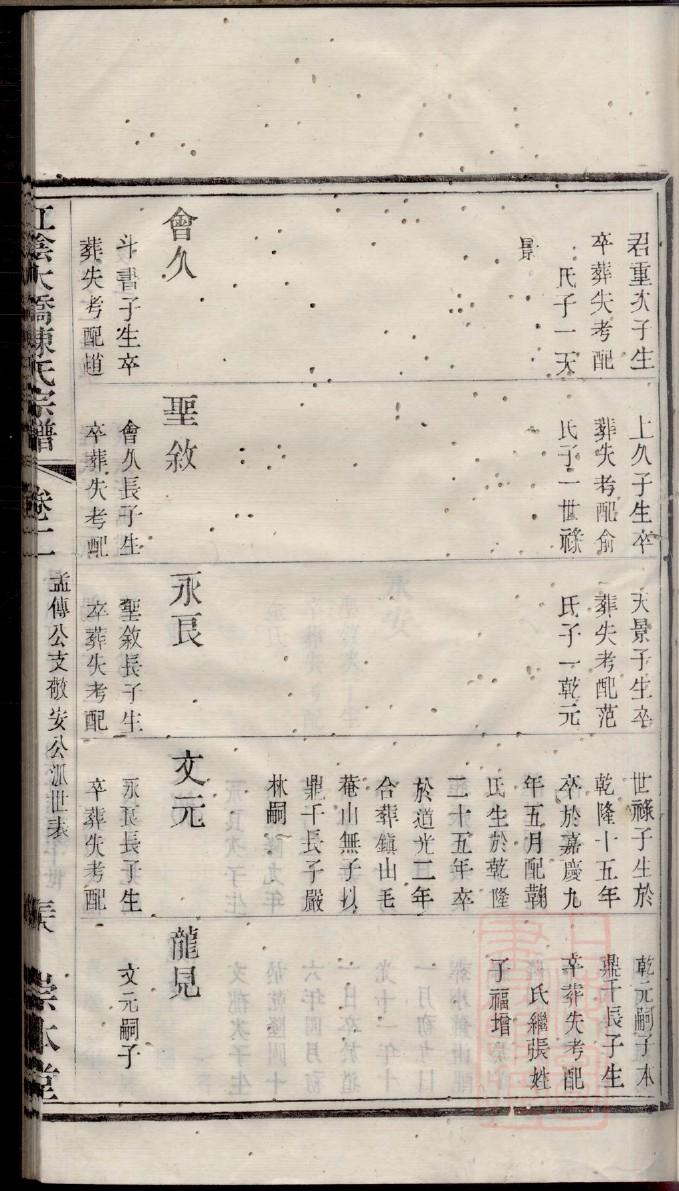 君重次子生
卒葬失考配
氏子一天
景
會久
斗書子生卒
葬失考配趙
上久子生卒
葬失考配俞
氏子一世祿
聖敘
會久長子生
卒葬失考配
天景子生卒
葬失考配范
氏子一乾元
永良
聖敘長子生
卒葬失考配
世祿子生於
乾隆十五年
卒於嘉慶九
年五月配鞠
氏生於乾隆
二十五年卒
於道光二年
合葬鎮山毛
菴山無子以
鼎千長子嚴
林嗣
文元
永良長子生
卒葬失考配
乾元嗣子本
鼎千長子生
卒葬失考配
氏繼張姓
子福增
龍見
文元嗣子
江陰大橋陳氏宗譜
卷二
孟傳公支敬安公派世表
崇本堂